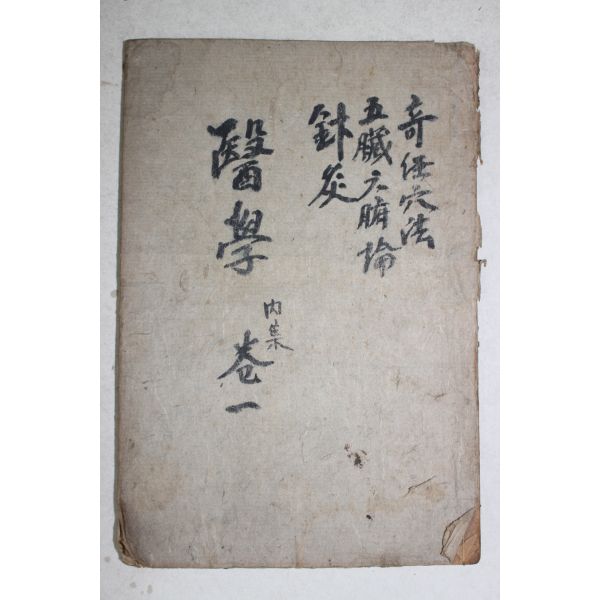 奇経穴法
五臟六腑論
針灸
醫學
內集
卷一